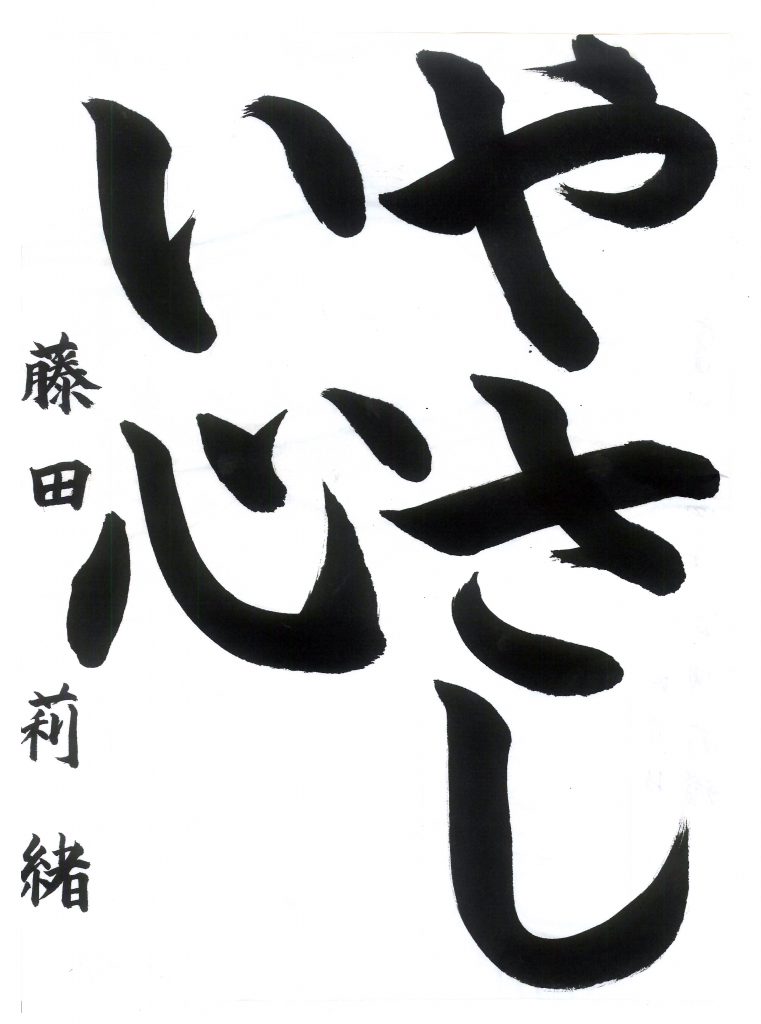 やさし
い心
藤田莉緒